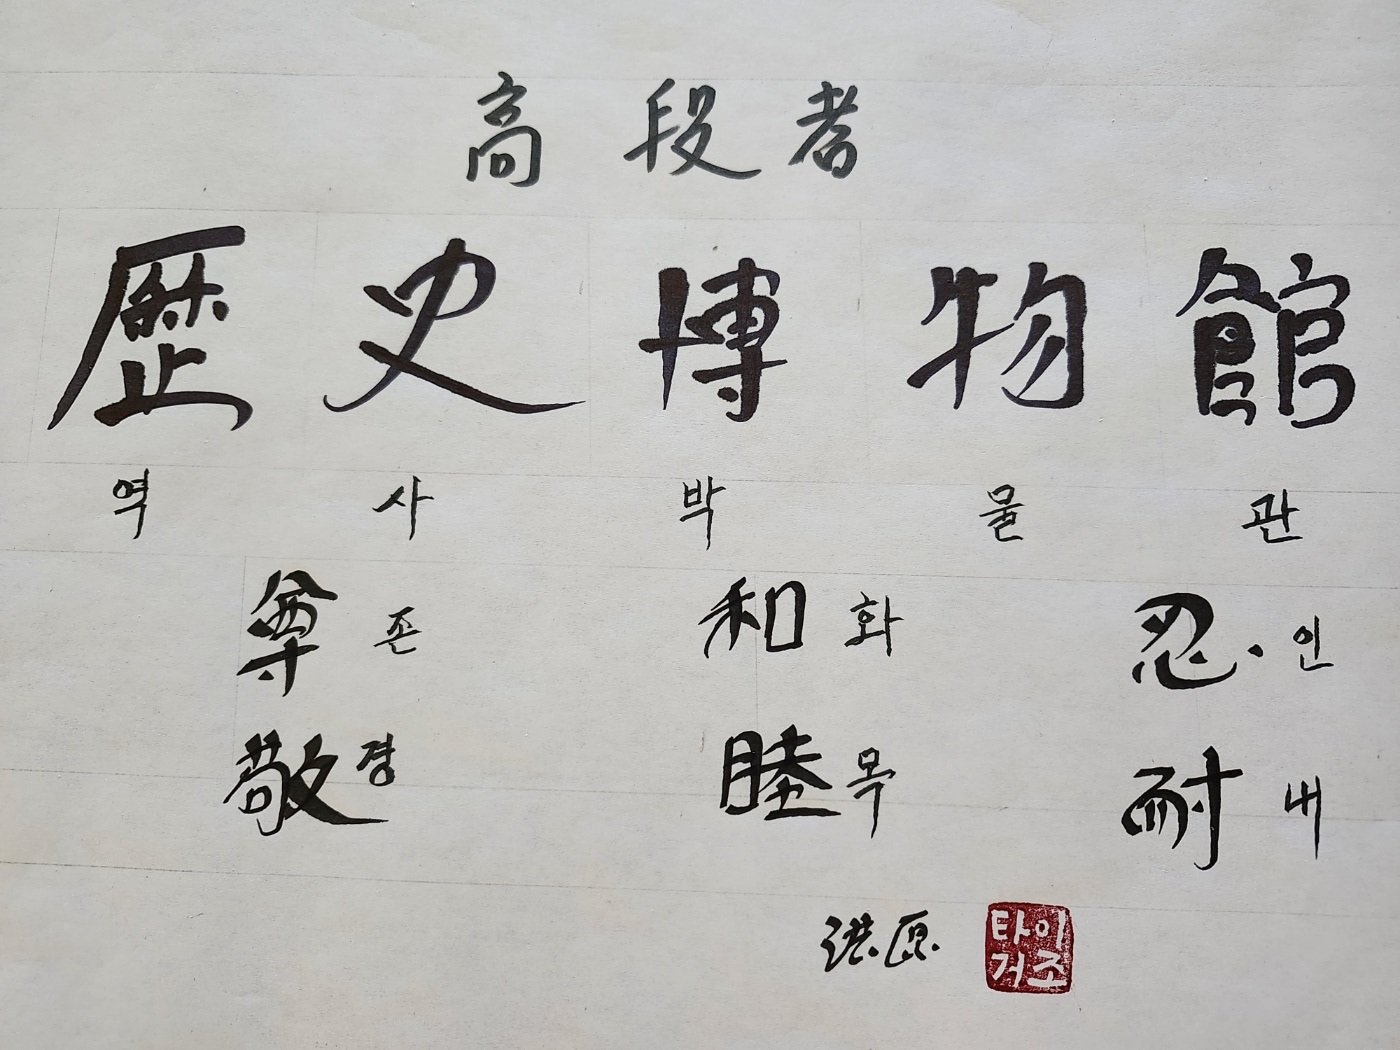 高段者
歷史博物館
역 사 박 물 관
尊 존 和 화 忍 인
敬 경 睦 목 耐 내
洪原
타이
거조